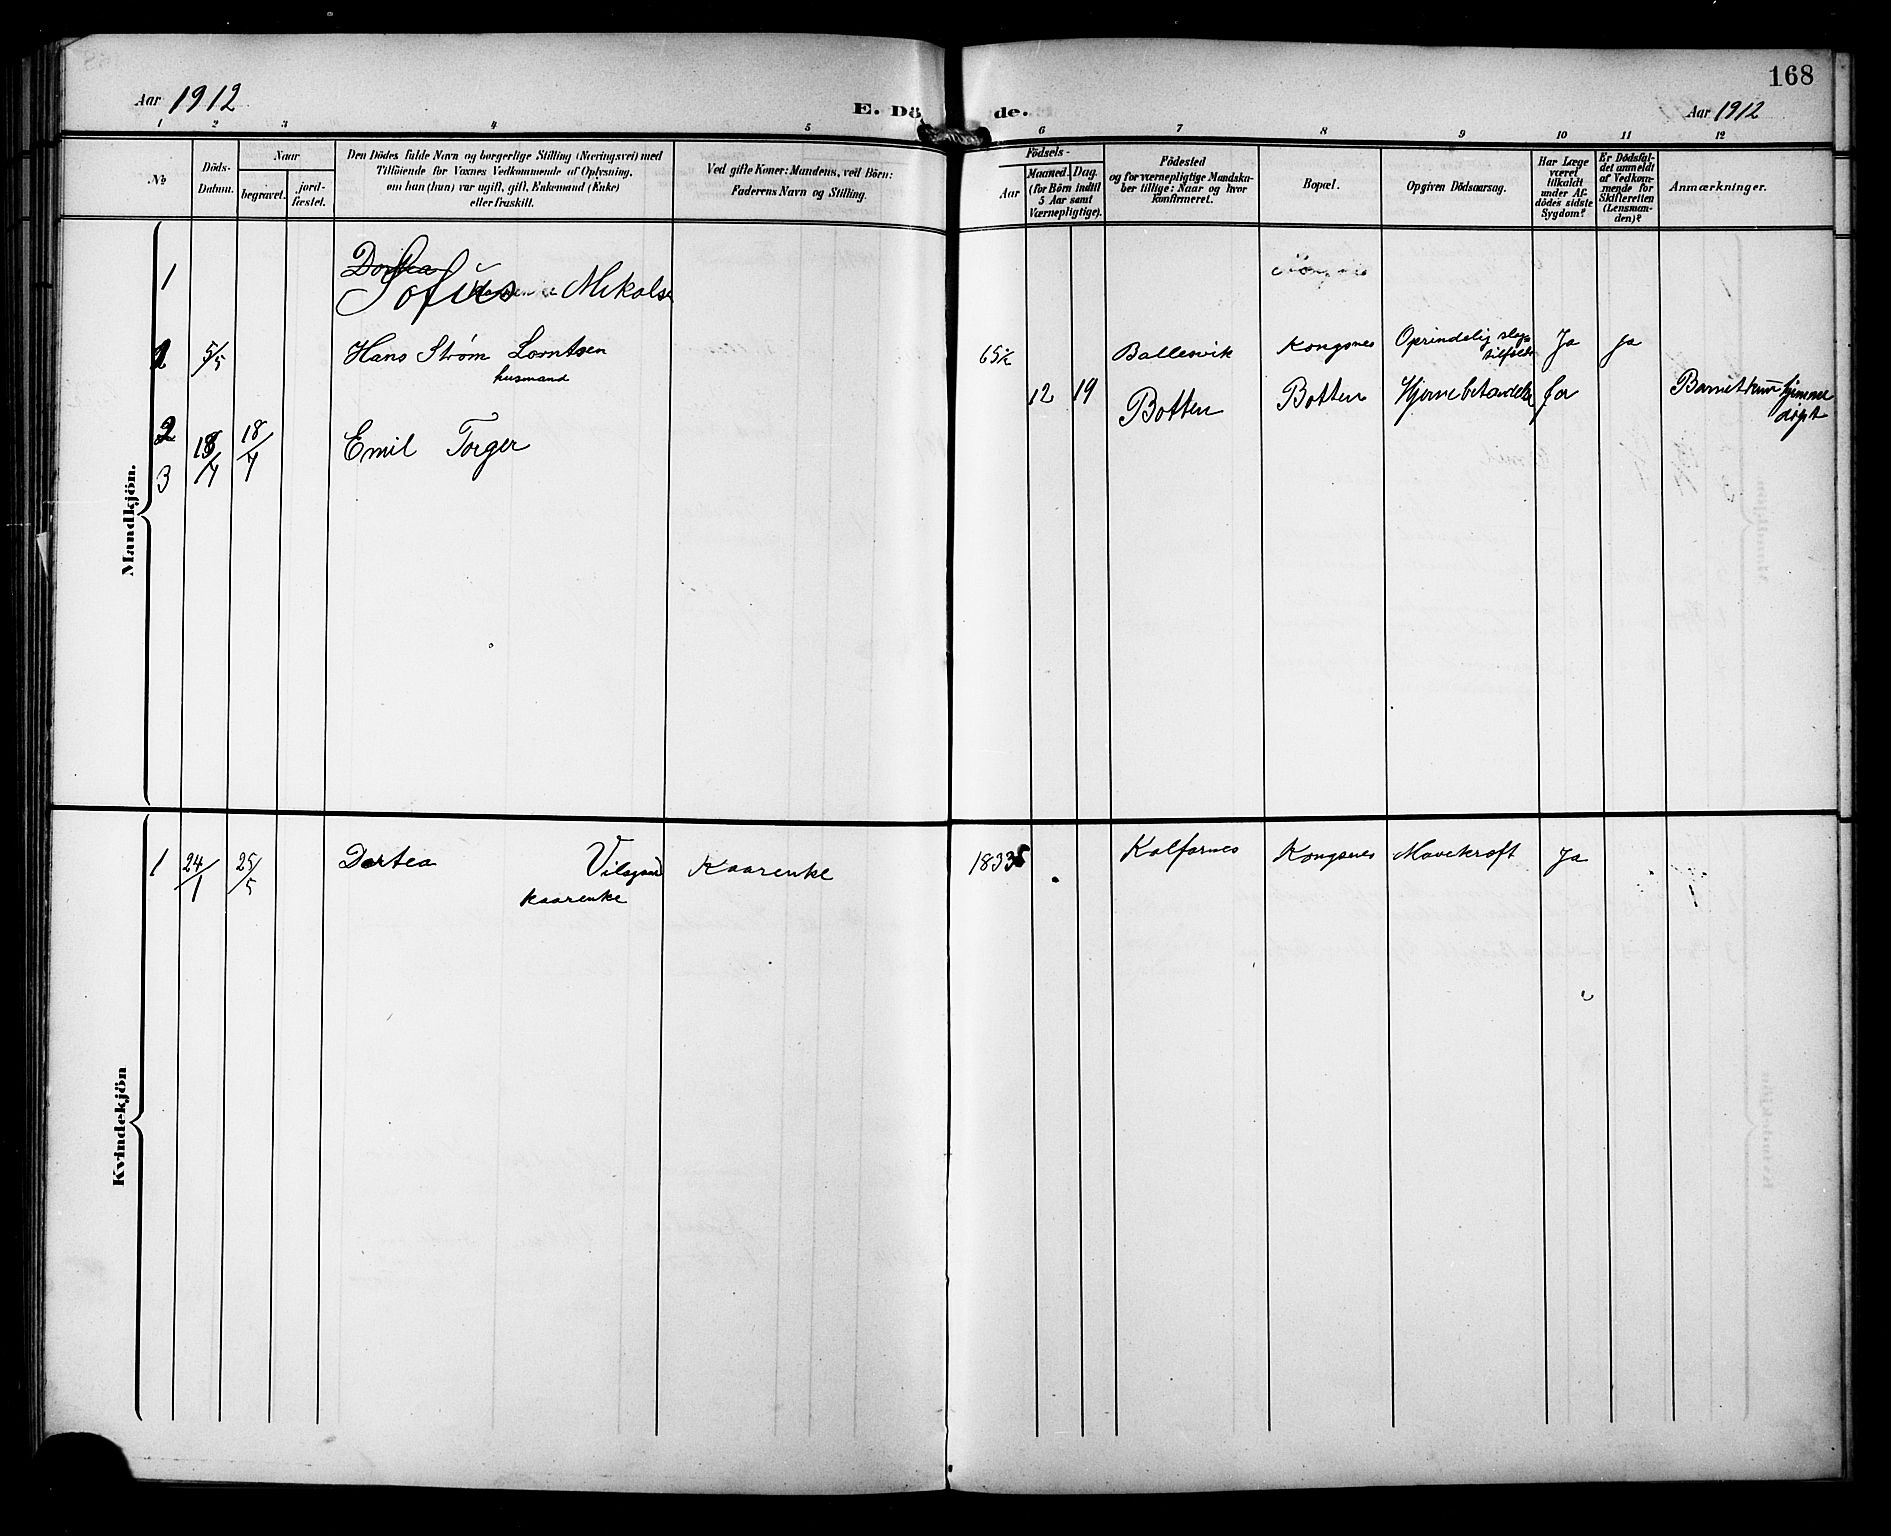 168
Aar 1912
E. Dö de.
Aar 1912
1 2 3 4 5 6 7 8 9 10 11 12
No.
Döds-
Datum.
Naar
begravet.
jord-
fæstet.
Den Dödes fulde Navn og borgerlige Stilling (Næringsvei) med
Tilföiende for Voxnes Vedkommende af Oplysning,
om han (hun) var ugift, gift, Enkemand (Enke)
eller fraskilt.
Ved gifte Koner: Mandens, ved Börn:
Faderens Navn og Stilling.
Födsels-
Aar
Maaned. Dag.
(for Börn indtil
5 Aar samt
Værnepligtige).
Födested
og for værnepligtige Mandska-
ber tillige: Naar og hvor
konfirmeret.
Bopæl.
Opgiven Dödsaarsag.
Har Læge
været
tilkaldt
under Af-
dödes sidste
Sygdom?
Er Dödsfal-
det anmeldt
af Vedkom-
mende for
Skifteretten
(Lensman-
den)?
Anmærkninger.
Mandkjön.
1 Dortea
Sofius Mikals
2 5/5 Hans Strøm Lorntsen 65 1/2 Ballesvik Kongsnes Oprindelig slag Ja Ja
husmand
tilfælde
12 19 Botten Botten Hjernebetændelse Ja Barnet kun hjemme
døpt
2 18/7 18/7 Emil Torger
3
Kvindekjön
1 24/1 25/5 Dortea Kaarenke 1835 Kalfarnes Kongsnes Mavekræft Ja
kaarenke